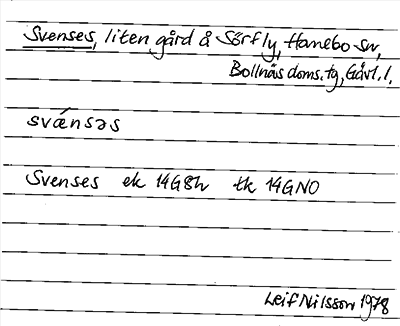 Svenses, liten gård å Sörfly, Hanebo sn,
Bollnäs doms. tg, Gävl. l.
svǽnsəs
Svenses ek 14G8h tk 14GNO
Leif Nilsson 1978